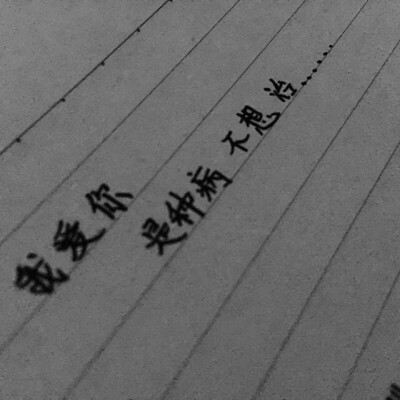 我爱你
是种病 不想治......